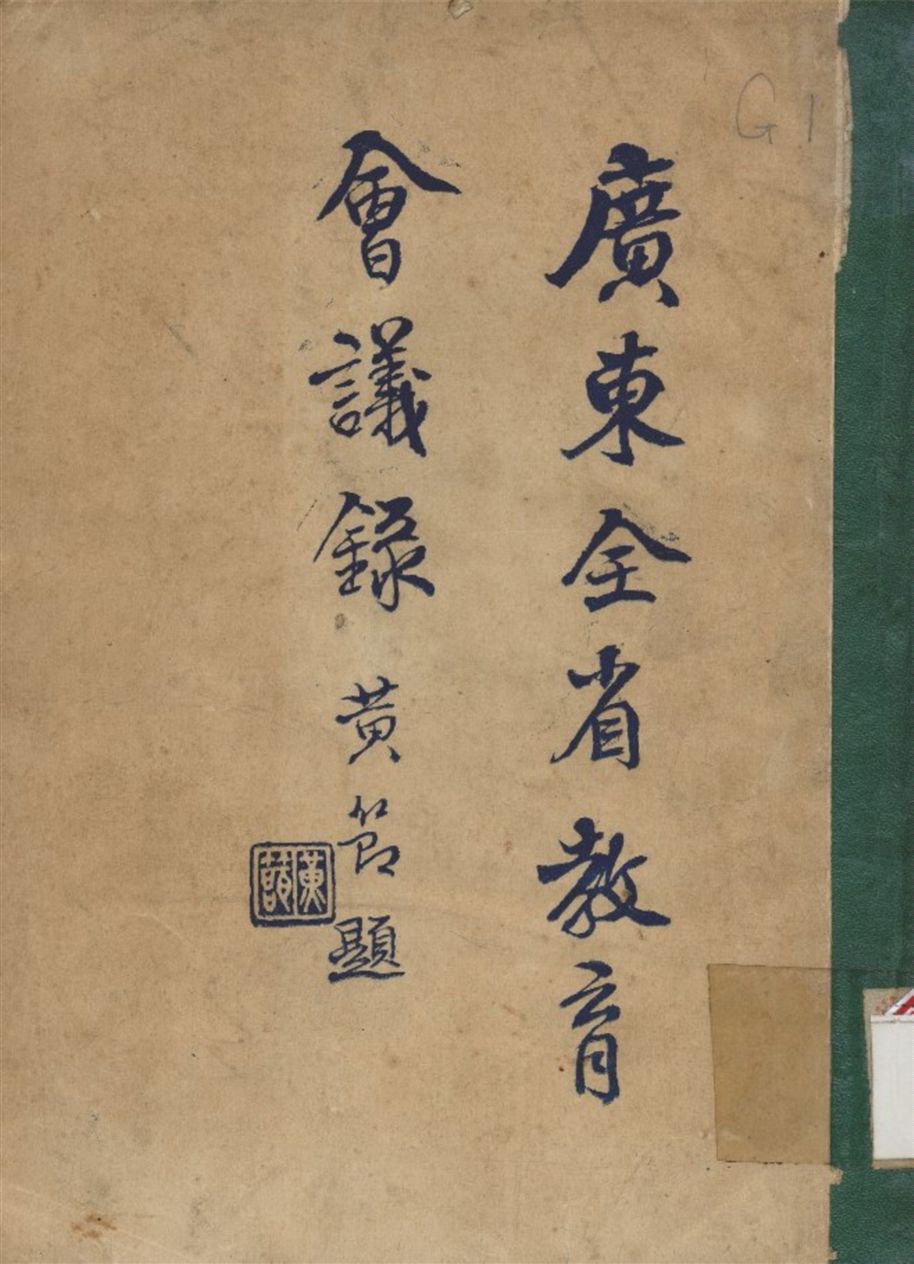 廣東全省教育
會議錄 黃節題
G1